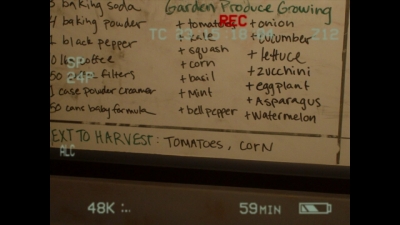 baking soda
Garden Produce Growing
REC
baking powder
+ tomatoes
+ onion
TC
Z12
+ cucumber
black pepper
+ squash
+ lettuce
SP
coffee
+ corn
+ zucchini
24P
filters
+ basil
+ eggplant
case powder creamer
+ Mint
+ Asparagus
50 cans baby formula
+ bell pepper
+ Watermelon
EXT TO HARVEST: TOMATOES, CORN
ALC
48K
59MIN